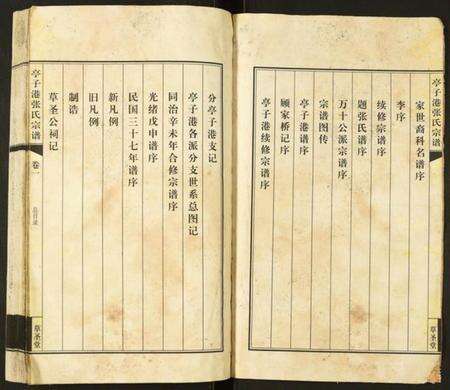 亭子港张氏宗谱
草圣堂
家世裔科名谱序
李序
续修宗谱序
题张氏谱序
万十公派宗谱序
宗谱图传
亭子港谱序
顾家桥记序
亭子港续修宗谱序
分亭子港支记
亭子港各派分支世系总图记
同治辛未年合修宗谱序
光绪戊申谱序
民国三十七年谱序
新凡例
旧凡例
制诰
草圣公祠记
亭子港张氏宗谱
卷一
总目录
草圣堂